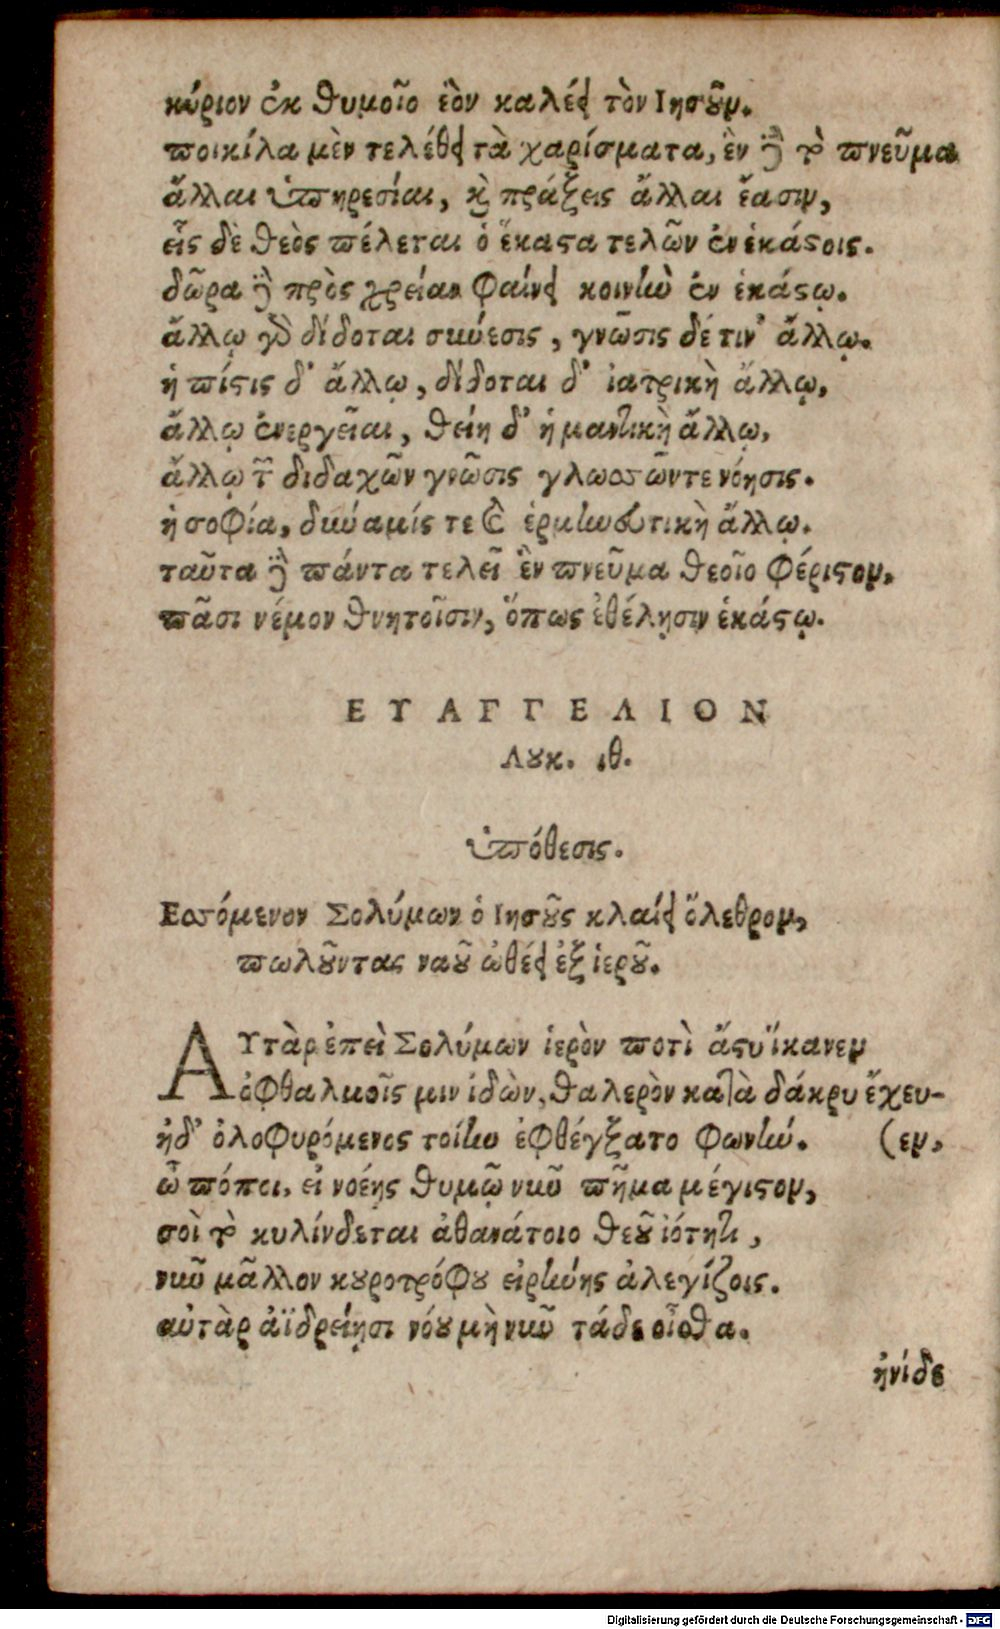 κύριον ἐκ θυμοῖο ἑὸν καλέει τὸν Ιησοῦν.
ποικίλα μὲν τελέθει τὰ χαρίσματα, ἓν δὲ τὸ πνεῦμα
ἄλλαι ὑπηρεσίαι, καὶ πράξεις ἄλλαι ἔασιν,
εἷς δὲ θεὸς πέλεται ὁ ἕκαστα τελῶν ἐν ἑκάστοις.
δῶρα δὲ πρὸς χρείαν φαίνει κοινὴν ἐν ἑκάστῳ.
ἄλλῳ γὰρ δίδοται σύνεσις, γνῶσις δέ τιν' ἄλλῳ.
ἡ πίστις δ' ἄλλῳ, δίδοται δ' ἰατρικὴ ἄλλῳ,
ἄλλῳ ἐνεργεῖαι, θείη δ' ἡ μαντικὴ ἄλλῳ,
ἄλλῳ τῶν διδαχῶν γνῶσις γλωσσῶντε νόησις.
ἡ σοφία, δύναμίς τε καὶ ἑρμηνευτικὴ ἄλλῳ.
ταῦτα δὲ πάντα τελεῖ ἓν πνεῦμα θεοῖο φέριστον,
πᾶσι νέμον θνητοῖσιν, ὅπως ἐθέλησιν ἑκάστῳ.
ΕΥΑΓΓΕΛΙΟΝ
Λουκ. ιθ.
ὑπόθεσις.
Εσσόμενον Σολύμων ὁ Ιησοῦς κλαίει ὄλεθρον,
πωλοῦντας ναοῦ ὠθέει ἐξ ἱεροῦ.
ΑΥτὰρ ἐπεὶ Σολύμων ἱερὸν ποτὶ ἄστυ ἵκανεν
ὀφθαλμοῖς μιν ἰδὼν, θαλερὸν κατὰ δάκρυ ἔχευ-
ἠδ' ὀλοφυρόμενος τοίην ἐφθέγξατο φωνήν. (εν,
ὦ πόποι, εἰ νοέης θυμῷ νῦν πῆμα μέγιστον,
σοὶ τὸ κυλίνδεται ἀθανάτοιο θεοῦ ἰότητι,
νῦν μᾶλλον κουροτρόφου εἰρήνης ἀλεγίζοις.
αὐτὰρ ἀϊδρείῃσι νόου μὴ νῦν τάδε οἶσθα.
ἠνίδε
Digitalisierung gefördert durch die Deutsche Forschungsgemeinschaft - DFG